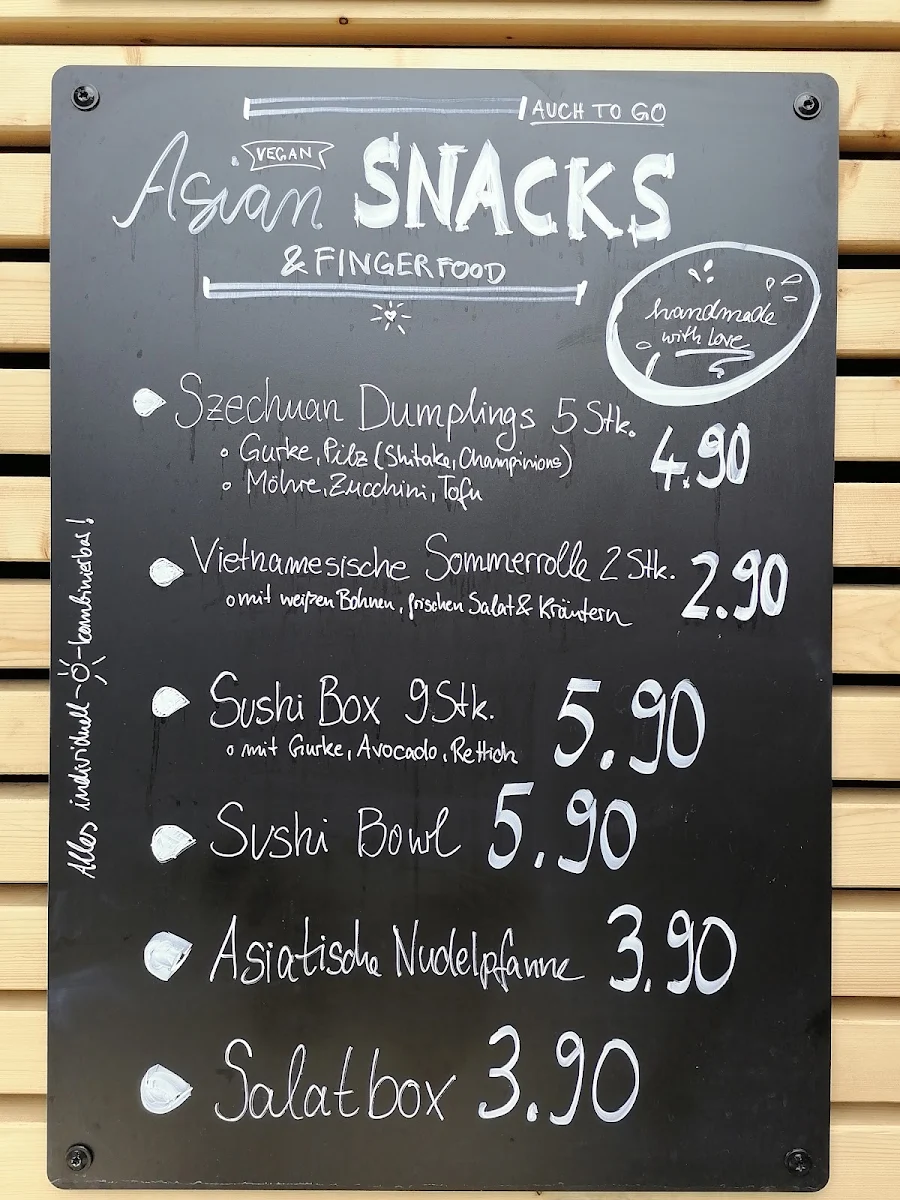 AUCH TO GO
VEGAN
Asian SNACKS
& FINGERFOOD
handmade
with love
Szechuan Dumplings 5 Stk.
Gurke, Pilz (Shitake, Champinions)
4.90
Möhre, Zucchini, Tofu
Vietnamesische Sommerrolle 2 Stk.
2.90
mit weißen Bohnen, frischen Salat & Kräutern
Sushi Box 9 Stk.
5.90
mit Gurke, Avocado, Rettich
Sushi Bowl 5.90
Asiatische Nudelpfanne 3.90
Salatbox 3.90
Alles individuell kombinierbar!